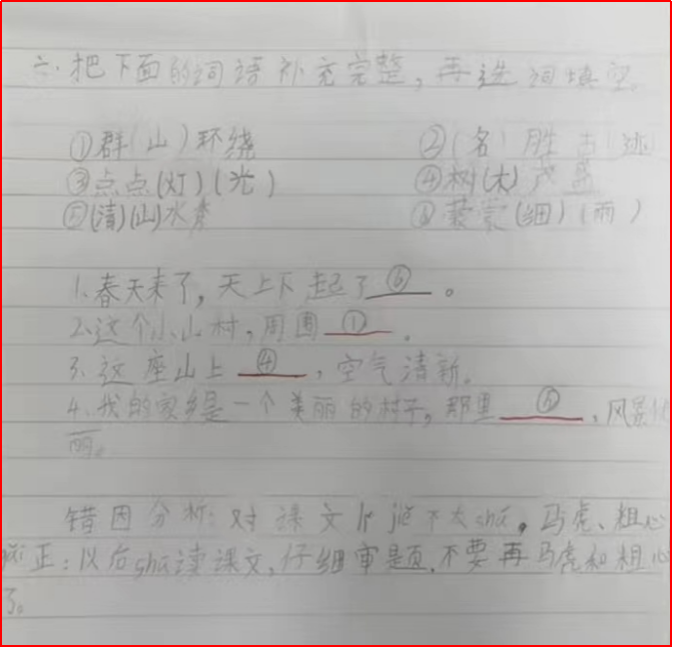 六、把下面的词语补充完整,再选词填空。
①群(山)环绕 ②(名)胜古迹
③点点(灯)(光) ④树(木)茂盛
⑤(清)(山)水秀 ⑥蒙蒙(细)(雨)
1.春天来了,天上下起了⑥。
2.这个小山村,周围①。
3.这座山上④,空气清新。
4.我的家乡是一个美丽的村子,那里⑤,风景优
丽。
错因分析:对课文lǐ jiě不太shú,马虎、粗心
正:以后shú读课文,仔细审题,不要再马虎和粗心
了。